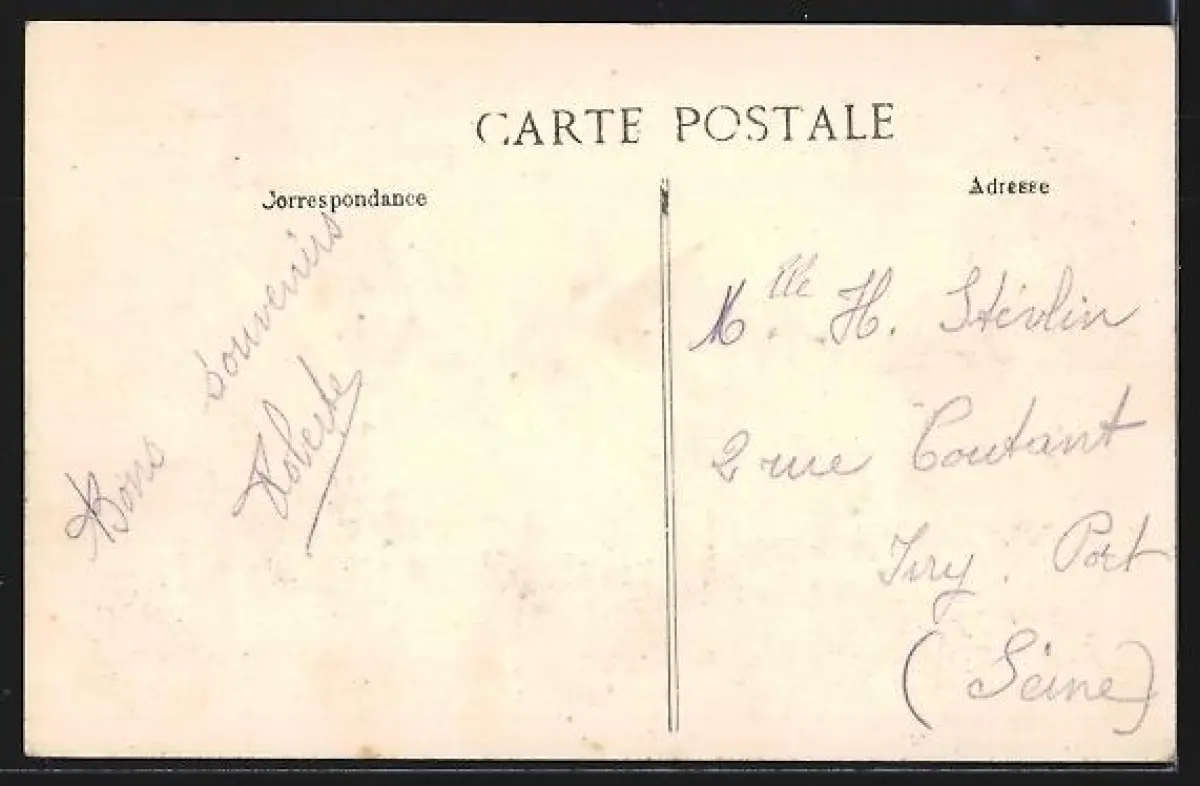 CARTE POSTALE
Correspondance
Adresse
Bons souvenirs
Roberte
Mlle. H. Stévlin
2 rue Coutant
Ivry. Port
(Seine)